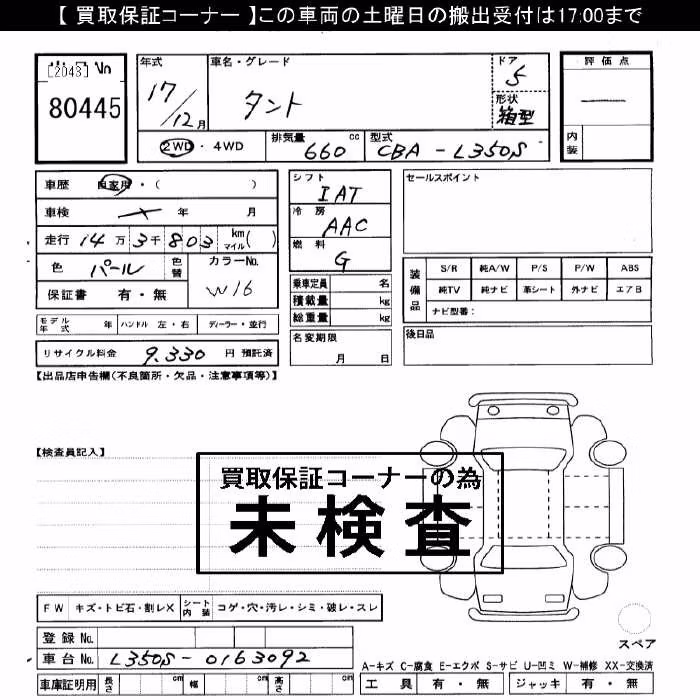 【買取保証コーナー】この車両の土曜日の搬出受付は17:00まで
[2043] No
80445
年式
17/12月
車名・グレード
タント
ドア
5
形状
箱型
評価点
―
内装
2WD・4WD
排気量 660 cc
型式 CBA-L350S
車歴 自家用・( )
車検 年 月
走行 14万3千803 km マイル( )
色 パール 色替
カラーNo.
W16
保証書 有・無
シフト
IAT
冷房
AAC
燃料
G
乗車定員 名
積載量 kg
総重量 kg
セールスポイント
装備品
S/R 純A/W P/S P/W ABS
純TV 純ナビ 革シート 外ナビ エアB
ナビ型番:
モデル年式 年 ハンドル 左・右 ディーラー・並行
名変期限
月 日
後日品
リサイクル料金 9,330 円 預託済
【出品店申告欄(不良箇所・欠品・注意事項等)】
【検査員記入】
買取保証コーナーの為
未検査
FW キズ・トビ石・割レX シート内装 コゲ・穴・汚レ・シミ・破レ・スレ
スペア
登録No.
車台No. L350S-0163092
A-キズ C-腐食 E-エクボ S-サビ U-凹ミ W-補修 XX-交換済
車庫証明用 長さ cm 幅 cm 高さ cm
工具 有・無 ジャッキ 有・無